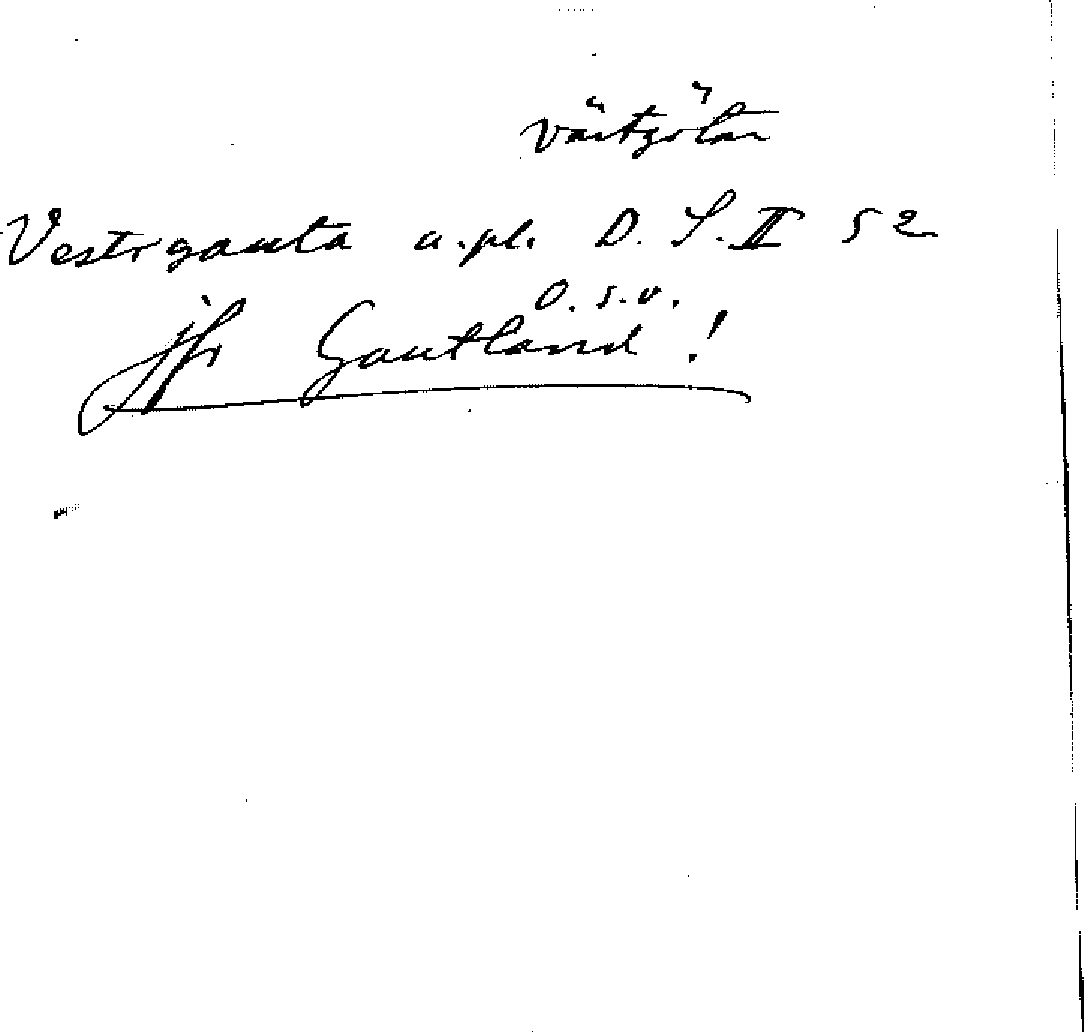 västgötar
Vestrgauta a.pl. D. S. II 52
o.s.v.
jfr Gautland!